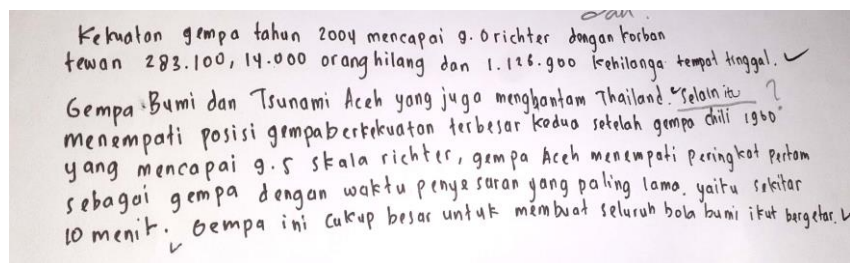 dan.
Kekuatan gempa tahun 2004 mencapai 9.0 richter dengan korban
tewan 283.100, 14.000 orang hilang dan 1.126.900 kehilanga tempat tinggal. ✓
Gempa Bumi dan Tsunami Aceh yang juga menghantam Thailand. Selain itu ?
menempati posisi gempa berkekuatan terbesar kedua setelah gempa chili 1960
yang mencapai 9.5 skala richter, gempa Aceh menempati peringkat pertam
sebagai gempa dengan waktu penyesaran yang paling lama. yaitu sekitar
10 menit. Gempa ini cukup besar untuk membuat seluruh bola bumi ikut bergetar. ✓